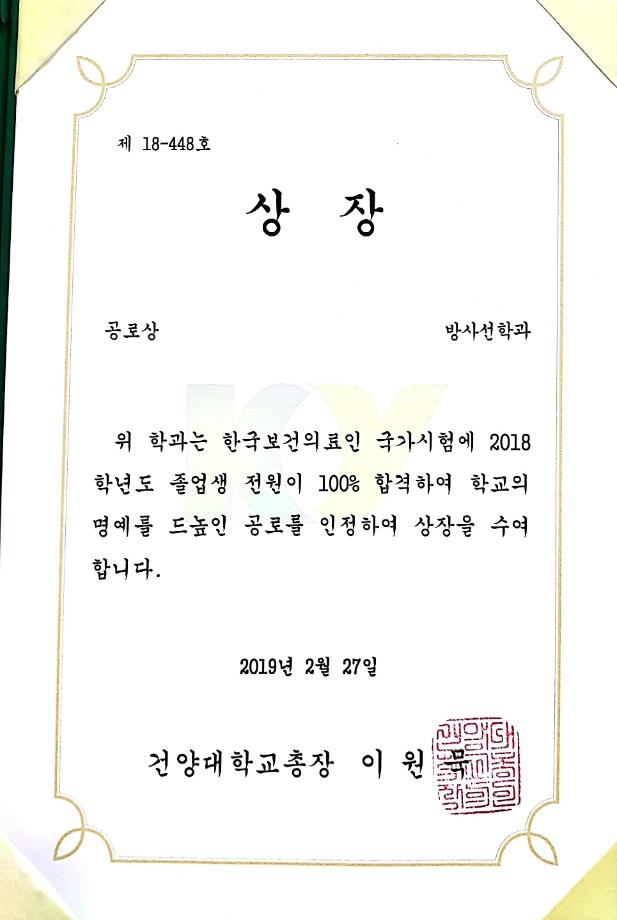 제 18-448호
상 장
공로상 방사선학과
위 학과는 한국보건의료인 국가시험에 2018
학년도 졸업생 전원이 100% 합격하여 학교의
명예를 드높인 공로를 인정하여 상장을 수여
합니다.
2019년 2월 27일
건양대학교총장 이 원 묵
KY